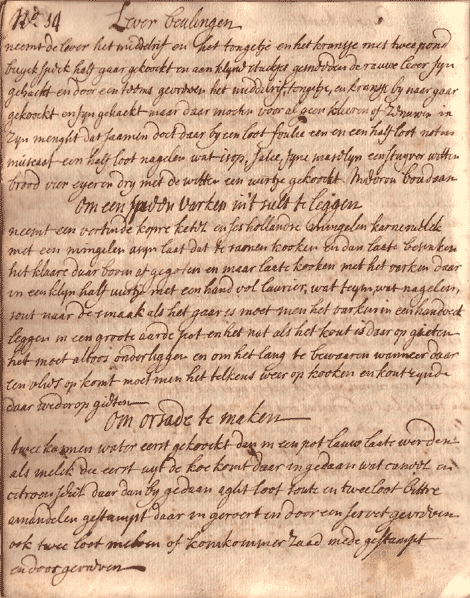 No. 14 Lever beulingen
neemt de lever het middelrif en het tongetje en het kransje met twee pond
buyck speck half gaar gekoockt en aan klyne stuckjes gesneeden de rauwe lever fyn
gehackt en door een teems gevreven het middelrif tongetje, en kransje by naer gaar
gekoockt en fyn gehackt maar daar moeten voor al geen klieren of zenuwen in
zyn menght dat saamen doet daar by een loot foulie een en een half loot noten
muscaat een half loot nagelen wat isop, salie, fyne marelyn een stuyver witten
brood vier eyeren dry met de witten een uirtje gekoockt
Om een speen varken uit sult te leggen
neemt een vertinde kopre ketel en ses hollandse mingelen karnemelck
met een mingelen asyn laat dat te saamen kooken en dan laate besincken
het klaare daar boven af gegoten en maar laate kooken met het varken daar
in een klyn half uirtje met een hand vol laurier, wat teym, wat nagelen,
sout naar de smaak als het gaar is moet men het varken in een handdoek
leggen in een groote aarde pot en het nat als het kout is daar op gieten
het moet altoos onder liggen en om het lang te bewaaren wanneer daar
een vlies op komt moet men het telkens weer op kooken en kout zynde
daar weder op gieten
Om orsade te maken
twee kannen water eerst gekoockt dan in een pot lauw laate werden
als melck die eerst uyt de koe komt daar in gedaan wat caneel en
citroen schil daar dan by gedaan aght loot soute en twee loot bittre
amandelen gestampt daar in geroert en door een servet gevreven
ook twee loot meloen of komkommer zaad mede gestampt
en door gevreven